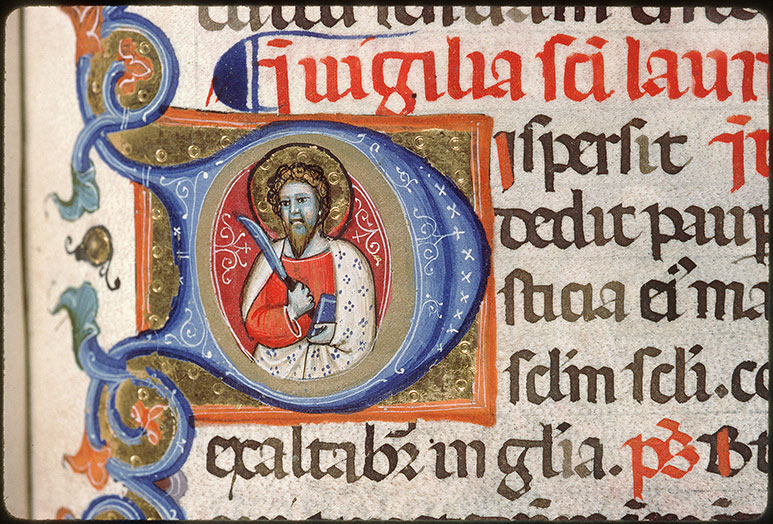 Jn uigilia sci laur
Dispersit
dedit paup
sticia eiꝰ ma
sclm scli. co
exaltabr in glia. ps B